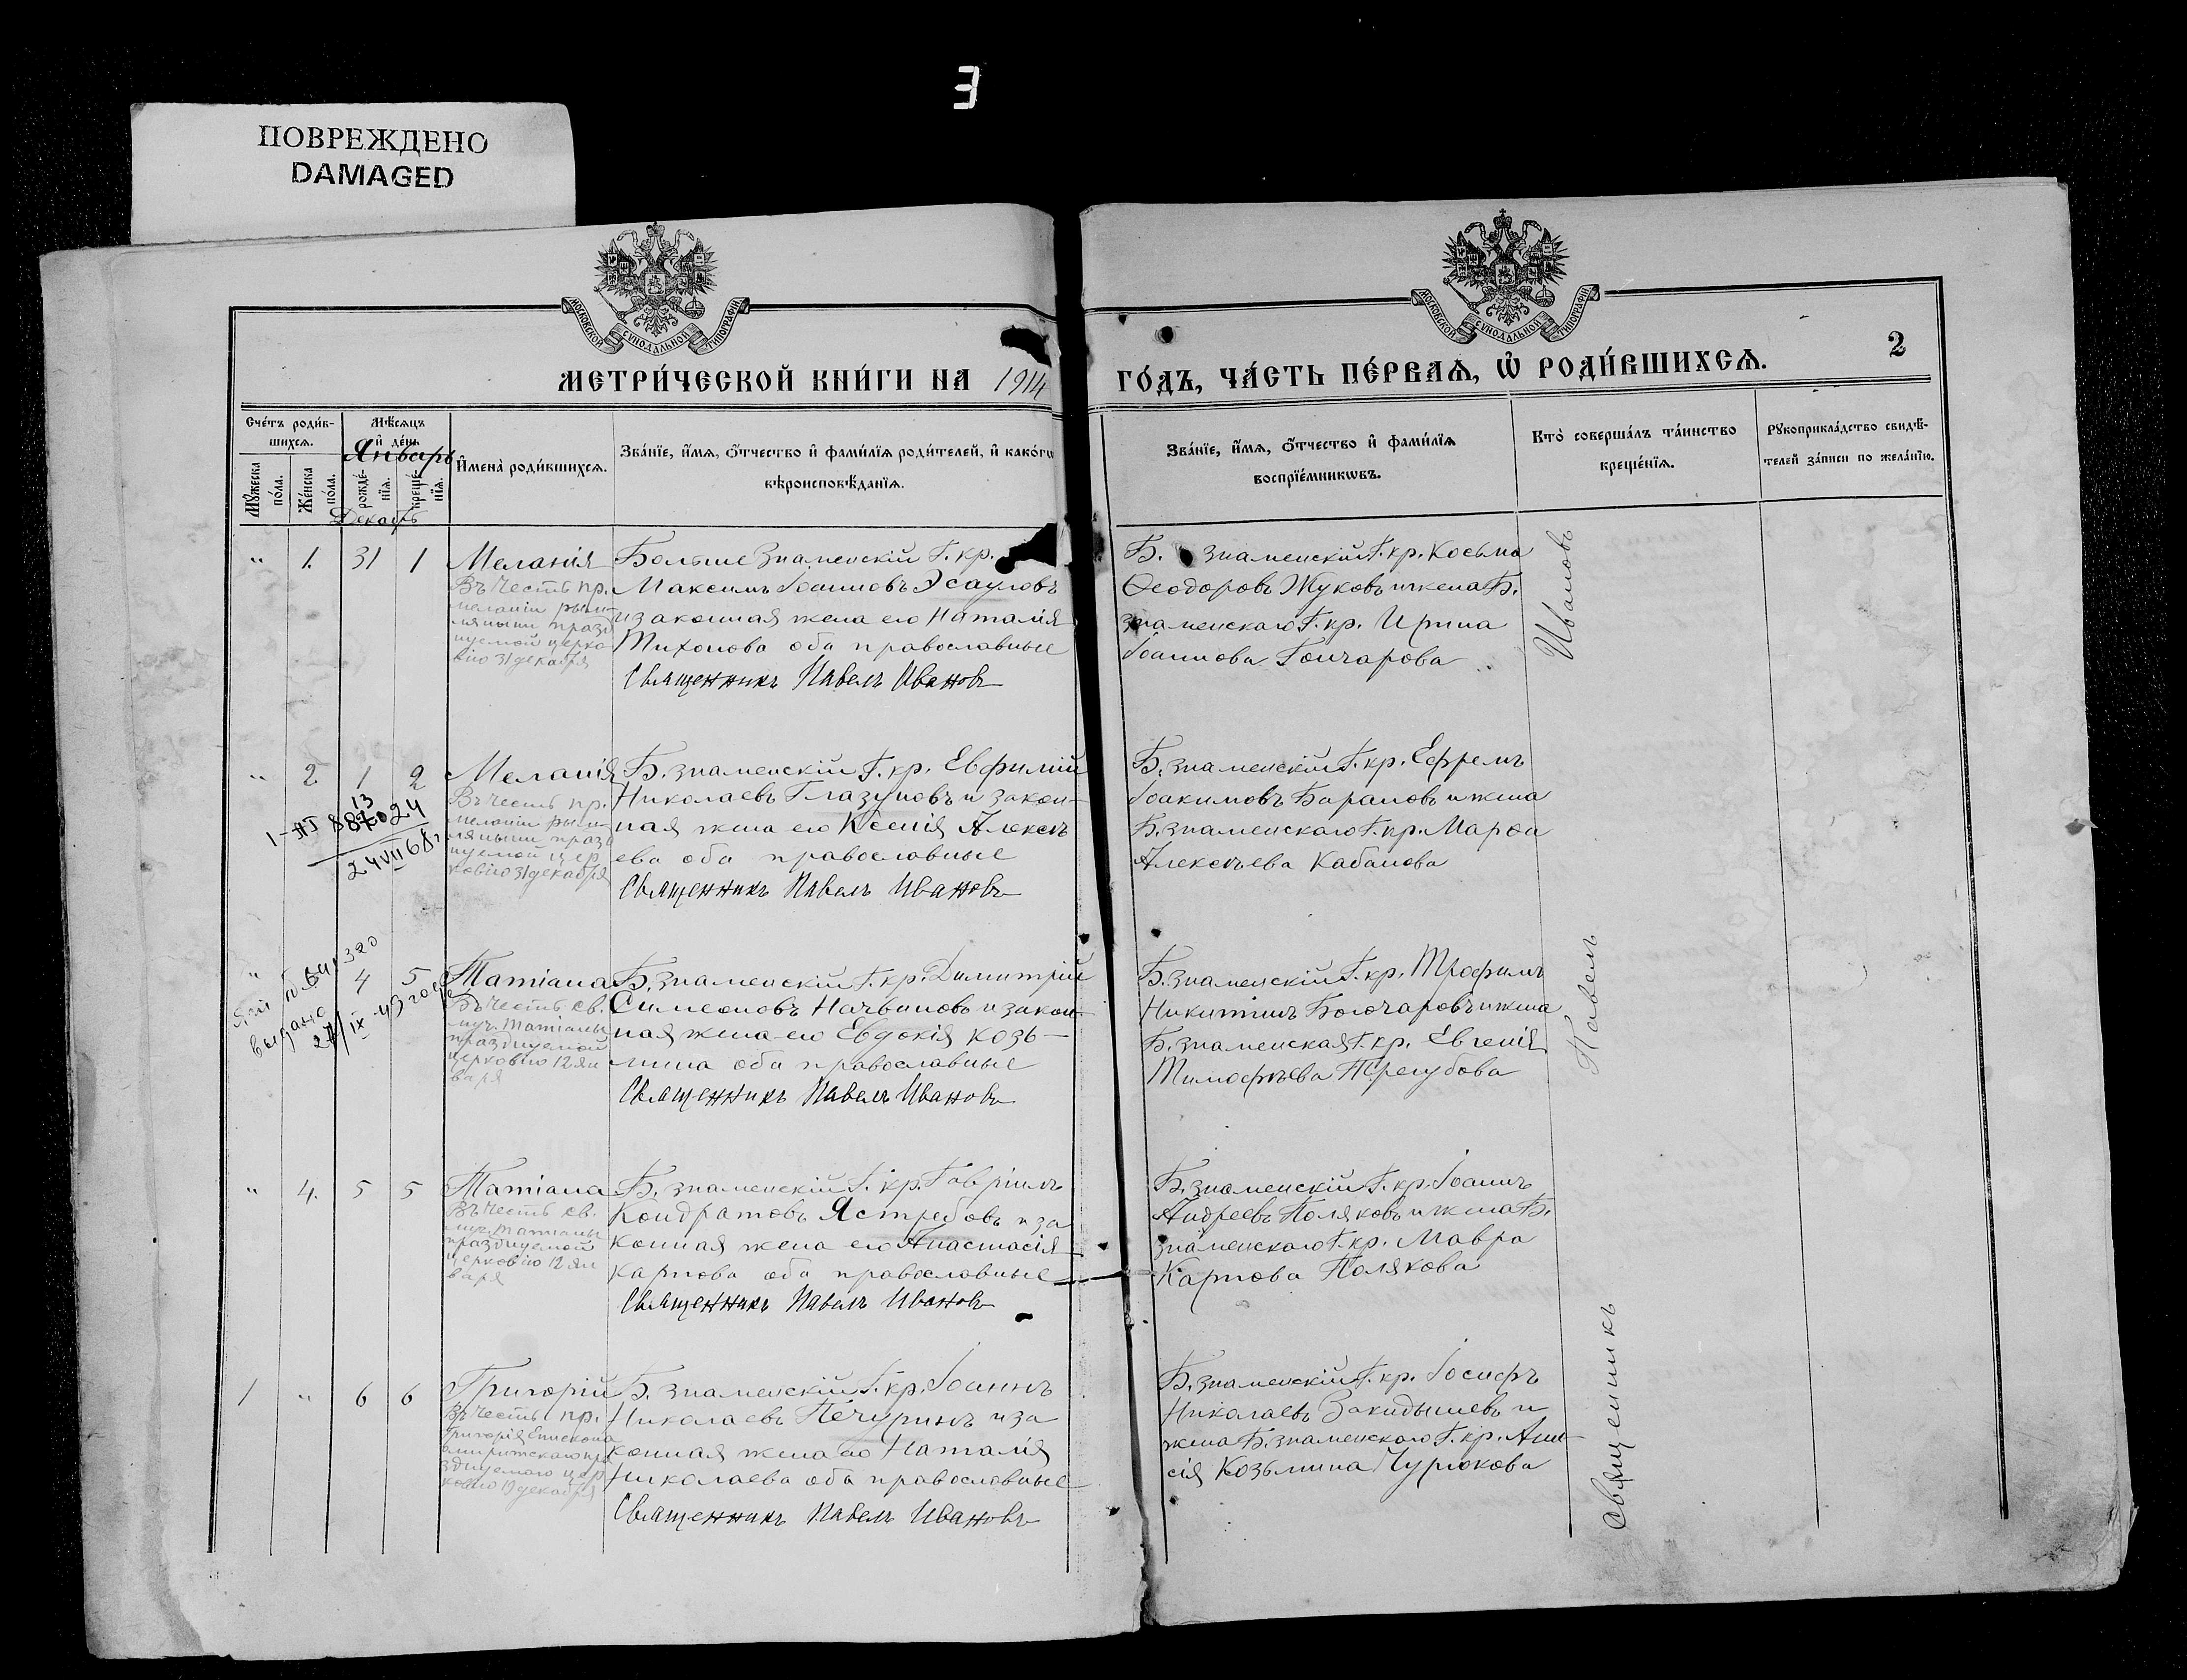 З
ПОВРЕЖДЕНО
DAMAGED
МОСКОВСКОЙ СУНОДАЛЬНОЙ ТИПОГРАФІИ
МОСКОВСКОЙ СУНОДАЛЬНОЙ ТИПОГРАФІИ
2
МЕТРИ́ЧЕСКОЙ КНИ́ГИ НА 1914
ГО́ДЪ, ЧА́СТЬ ПЕ́РВАѦ, Ѿ РОДИ́ВШИХСѦ.
Сче́тъ роди́в-
шихсѧ.
Мѣ́сѧцъ
и҆ де́нь
Январь
Мꙋ́жеска
по́ла.
Же́нска
по́ла.
рожде́-
нїѧ.
креще́-
нїѧ.
Декабрь
И҆мена̀ роди́вшихсѧ.
Зва́нїе, и҆́мѧ, ѻ҆́тчество и҆ фами́лїѧ роди́телей, и҆ како́гѡ
вѣроисповѣ́данїѧ.
Зва́нїе, и҆́мѧ, ѻ҆́тчество и҆ фами́лїѧ
воспрїе́мникѡвъ.
Кто̀ соверша́лъ та́инство
креще́нїѧ.
Рꙋкоприкла́дство свидѣ́-
телей за́писи по жела́нїю.
" 1. 31 1 Меланія
Въ честь пр.
меланіи рым-
ляныни празд
нуемой церко
вію 31 декабря
Больше Знаменскій Г. кр.
Максимъ Іоанновъ Эсауловъ
и законная жена его Наталія
Тихонова оба православные
Священникъ Павелъ Ивановъ
Б. знаменскій Г. кр. Косьма
Ѳеодоровъ Жуковъ и жена Б.
знаменскаго Г. кр. Ирина
Іоаннова Гончарова
" 2 1 2 Меланія
Въ честь пр.
меланіи рым-
ляныни празд
нуемой цер
ковію 31 декабря
24 VII 68 г
Б. знаменскій Г. кр. Евфимій
Николаевъ Глазуновъ и закон-
ная жена его Ксенія Алексѣ
ева оба православные
Священникъ Павелъ Ивановъ
Б. знаменскій Г. кр. Ефремъ
Іоакимовъ Барановъ и жена
Б. знаменскаго Г. кр. Марѳа
Алексѣева Кабанова
" 4 5 Татіана
Въ честь св.
муч. Татіаны
празднуемой
церковію 12 ян
варя
выдано
27/IX 43 года
Б. знаменскій Г. кр. Димитрій
Симеоновъ Начвановъ и закон-
ная жена его Евдокія Козь-
мина оба православные
Священникъ Павелъ Ивановъ
Б. знаменскій Г. кр. Трофимъ
Никитинъ Бочаровъ и жена
Б. знаменская Г. кр. Евгенія
Тимофѣева
" 4. 5 5 Татіана
Въ честь св.
муч. Татіаны
празднуемой
церковію 12 ян
варя
Б. знаменскій Г. кр. Гавріилъ
Кондратовъ Ястребовъ и за
конная жена его Анастасія
Карпова оба православные
Священникъ Павелъ Ивановъ
Б. знаменскій Г. кр. Іоаннъ
Андреевъ Поляковъ и жена Б.
знаменскаго Г. кр. Мавра
Карпова Полякова
1 " 6 6 Григорій
Въ честь пр.
Григорія Епископа
омиритскаго пра
зднуемаго цер
ковію 19 декабря
Б. знаменскій Г. кр. Іоаннъ
Николаевъ Печуринъ и за
конная жена его Наталія
Николаева оба православные
Священникъ Павелъ Ивановъ
Б. знаменскій Г. кр. Іосифъ
Николаевъ Закидышевъ и
жена Б. знаменскаго Г. кр. Ани-
сія Козьмина Чурюкова
Священникъ Павелъ Ивановъ